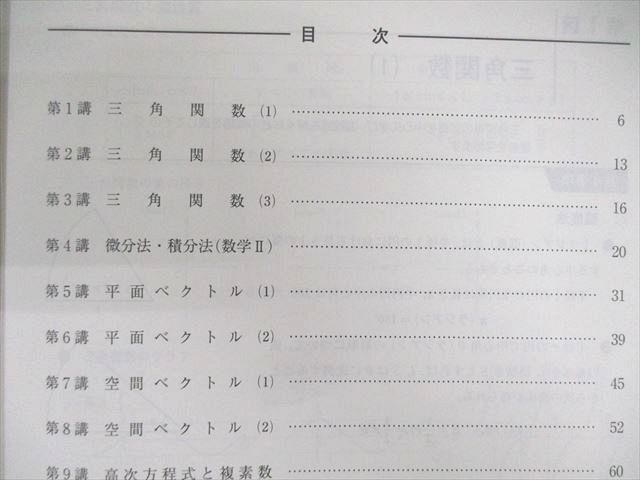 目 次
第1講 三角関数(1) …… 6
第2講 三角関数(2) …… 13
第3講 三角関数(3) …… 16
第4講 微分法・積分法(数学Ⅱ) …… 20
第5講 平面ベクトル(1) …… 31
第6講 平面ベクトル(2) …… 39
第7講 空間ベクトル(1) …… 45
第8講 空間ベクトル(2) …… 52
第9講 高次方程式と複素数 …… 60